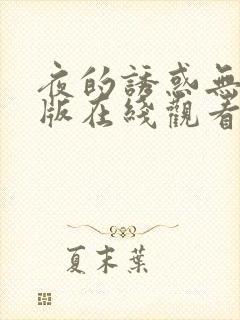 夜的誘惑無
版在綫觀看
夏末葉